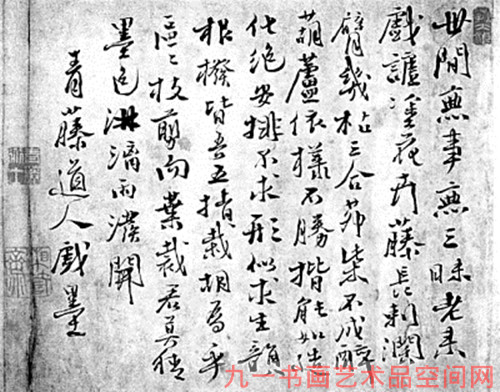 世間無事無三昧老来
戲謔塗花卉藤長刺濶
臂幾枯三合茅柴不成醉
葫蘆依樣不勝揩能如造
化絶安排不求形似求生韻
根撥皆吾五指栽胡為乎
區〻枝剪而葉裁君莫猜
墨色淋漓雨潑開
青藤道人戲墨
九一书画艺术品空间网